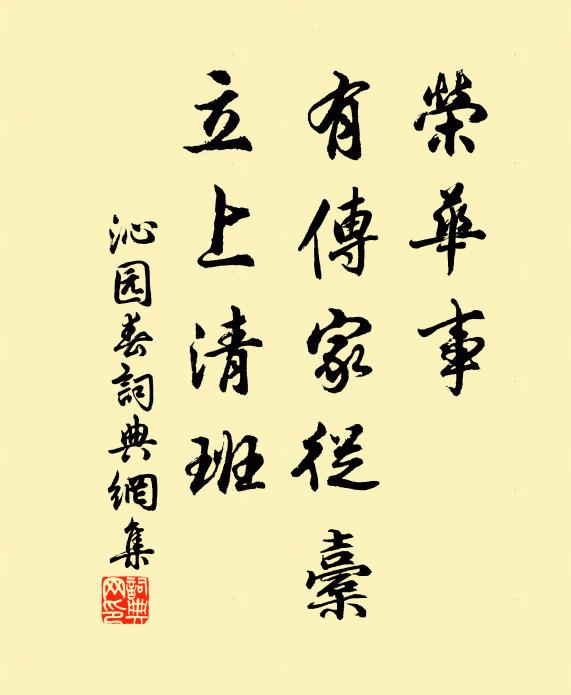 榮華事
有傳家從橐
立上清班
沁园春詞典網集
詞典网印